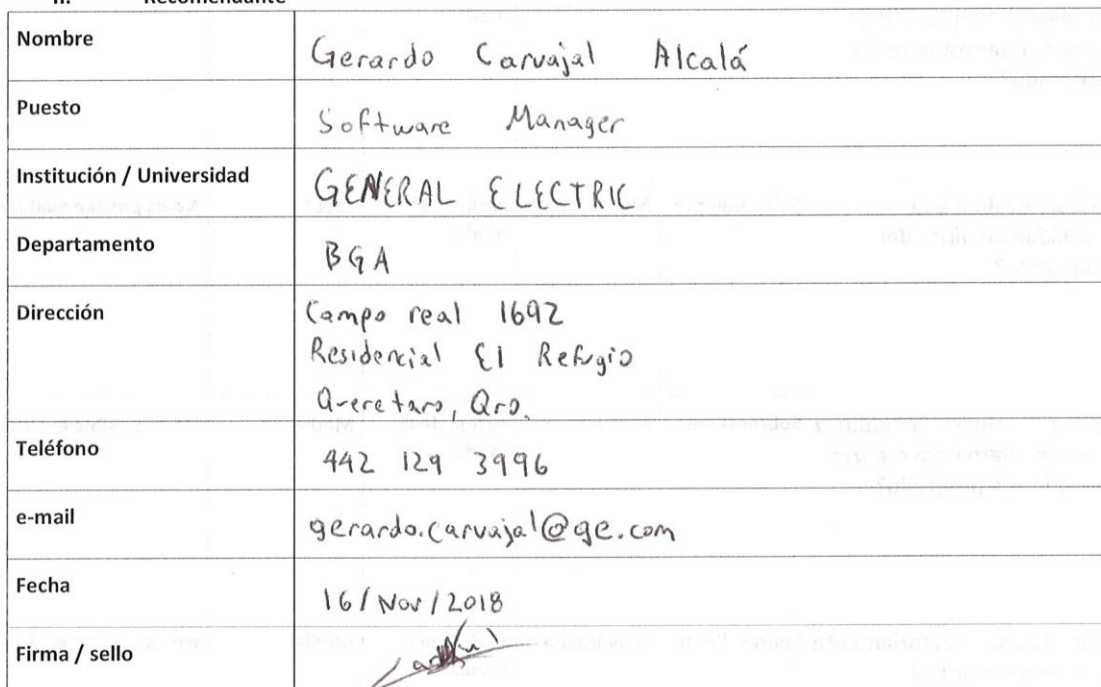 II. Recomendante
Nombre
Gerardo Carvajal Alcalá
Puesto
Software Manager
Institución / Universidad
GENERAL ELECTRIC
Departamento
BGA
Dirección
Campo real 1692
Residencial El Refugio
Queretaro, Qro.
Teléfono
442 129 3996
e-mail
gerardo.carvajal@ge.com
Fecha
16/Nov/2018
Firma / sello